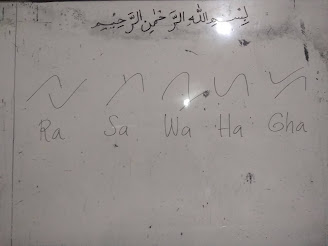 بِسْمِ اللهِ الرَّحْمٰنِ الرَّحِيْمِ
Ra Sa Wa Ha Gha